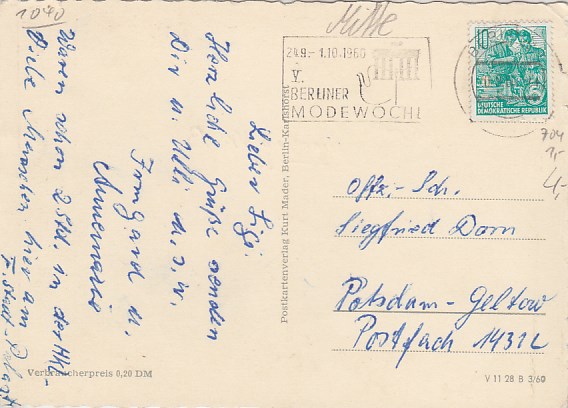 1070
Mitte
24.9.-1.10.1960
V.
BERLINER
MODEWOCHE
10
DEUTSCHE
DEMOKRATISCHE REPUBLIK
704
1,-
4,-
Lieber Sigi.
Herzliche Grüße senden
Dir u. Ulli u.s.w.
Irmgard u.
Annemarie
Waren schon 2 Std. in der
Viele Menschen hier am
Postkartenverlag Kurt Mader, Berlin-Karlshorst
Offz.-Sch.
Siegfried Dorn
Potsdam-Geltow
Postfach 1431L
Verbraucherpreis 0,20 DM
V 11 28 B 3/60